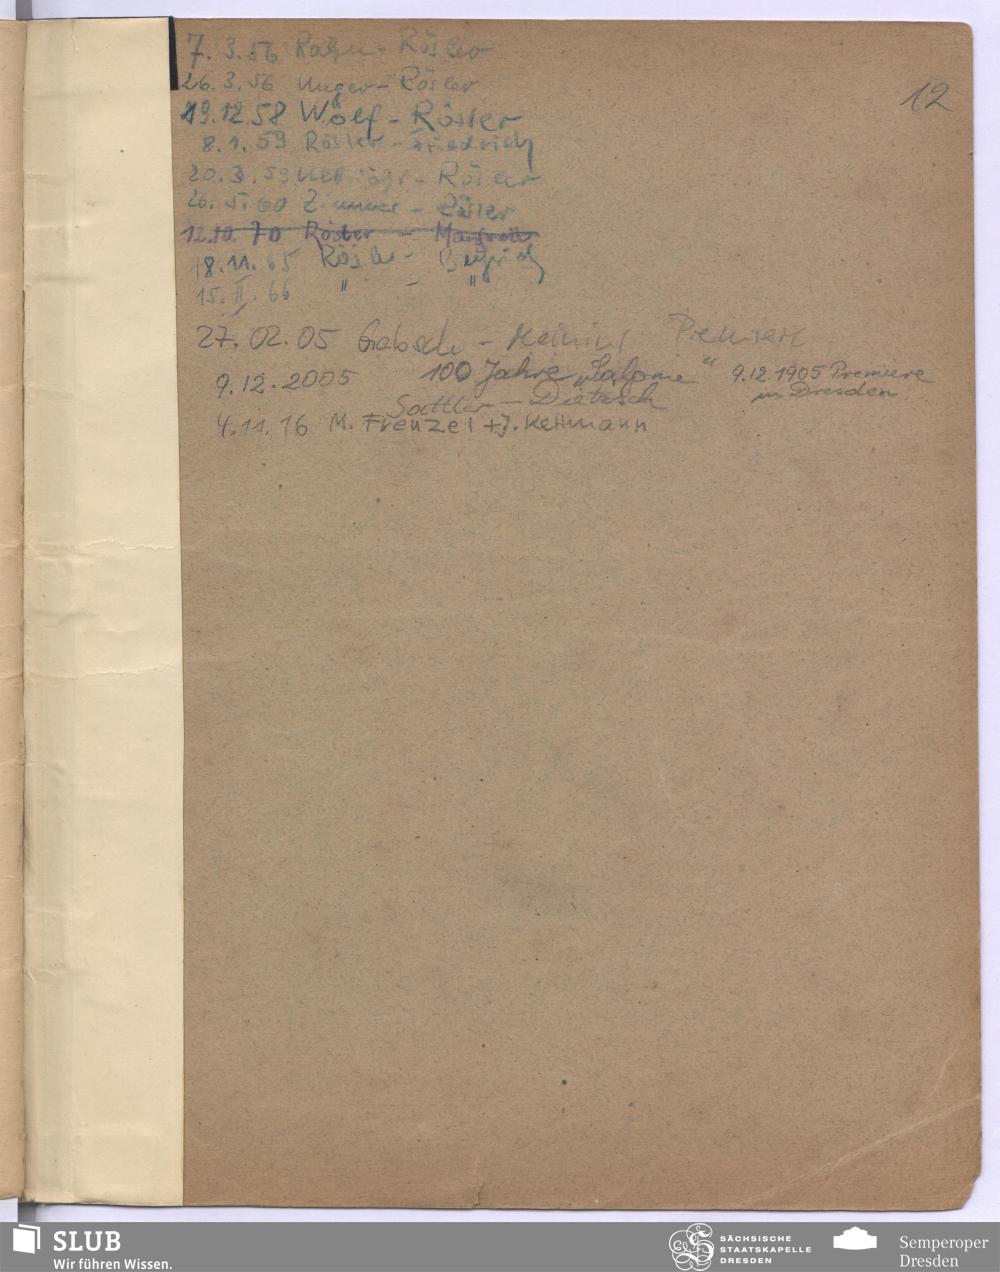 12
7. 3. 56 - Rösler
26. 3. 56 Unger - Rösler
19. 12. 58 Wolf - Rösler
8. 1. 59 Rösler - Friedrich
20. 3. 59 - Rösler
26. 5. 60 Zimmer - Rösler
12. 10. 70 Rösler -
18. 11. 65 Rösler -
15. II. 66 " - "
27. 02. 05 Gabsch - Premiere
9. 12. 2005 100 Jahre „Salome" 9.12.1905 Premiere
in Dresden
Sattler - Dietzsch
4. 11. 16 M. Frenzel + J. Kettmann
SLUB
Wir führen Wissen.
SÄCHSISCHE
STAATSKAPELLE
DRESDEN
Semperoper
Dresden